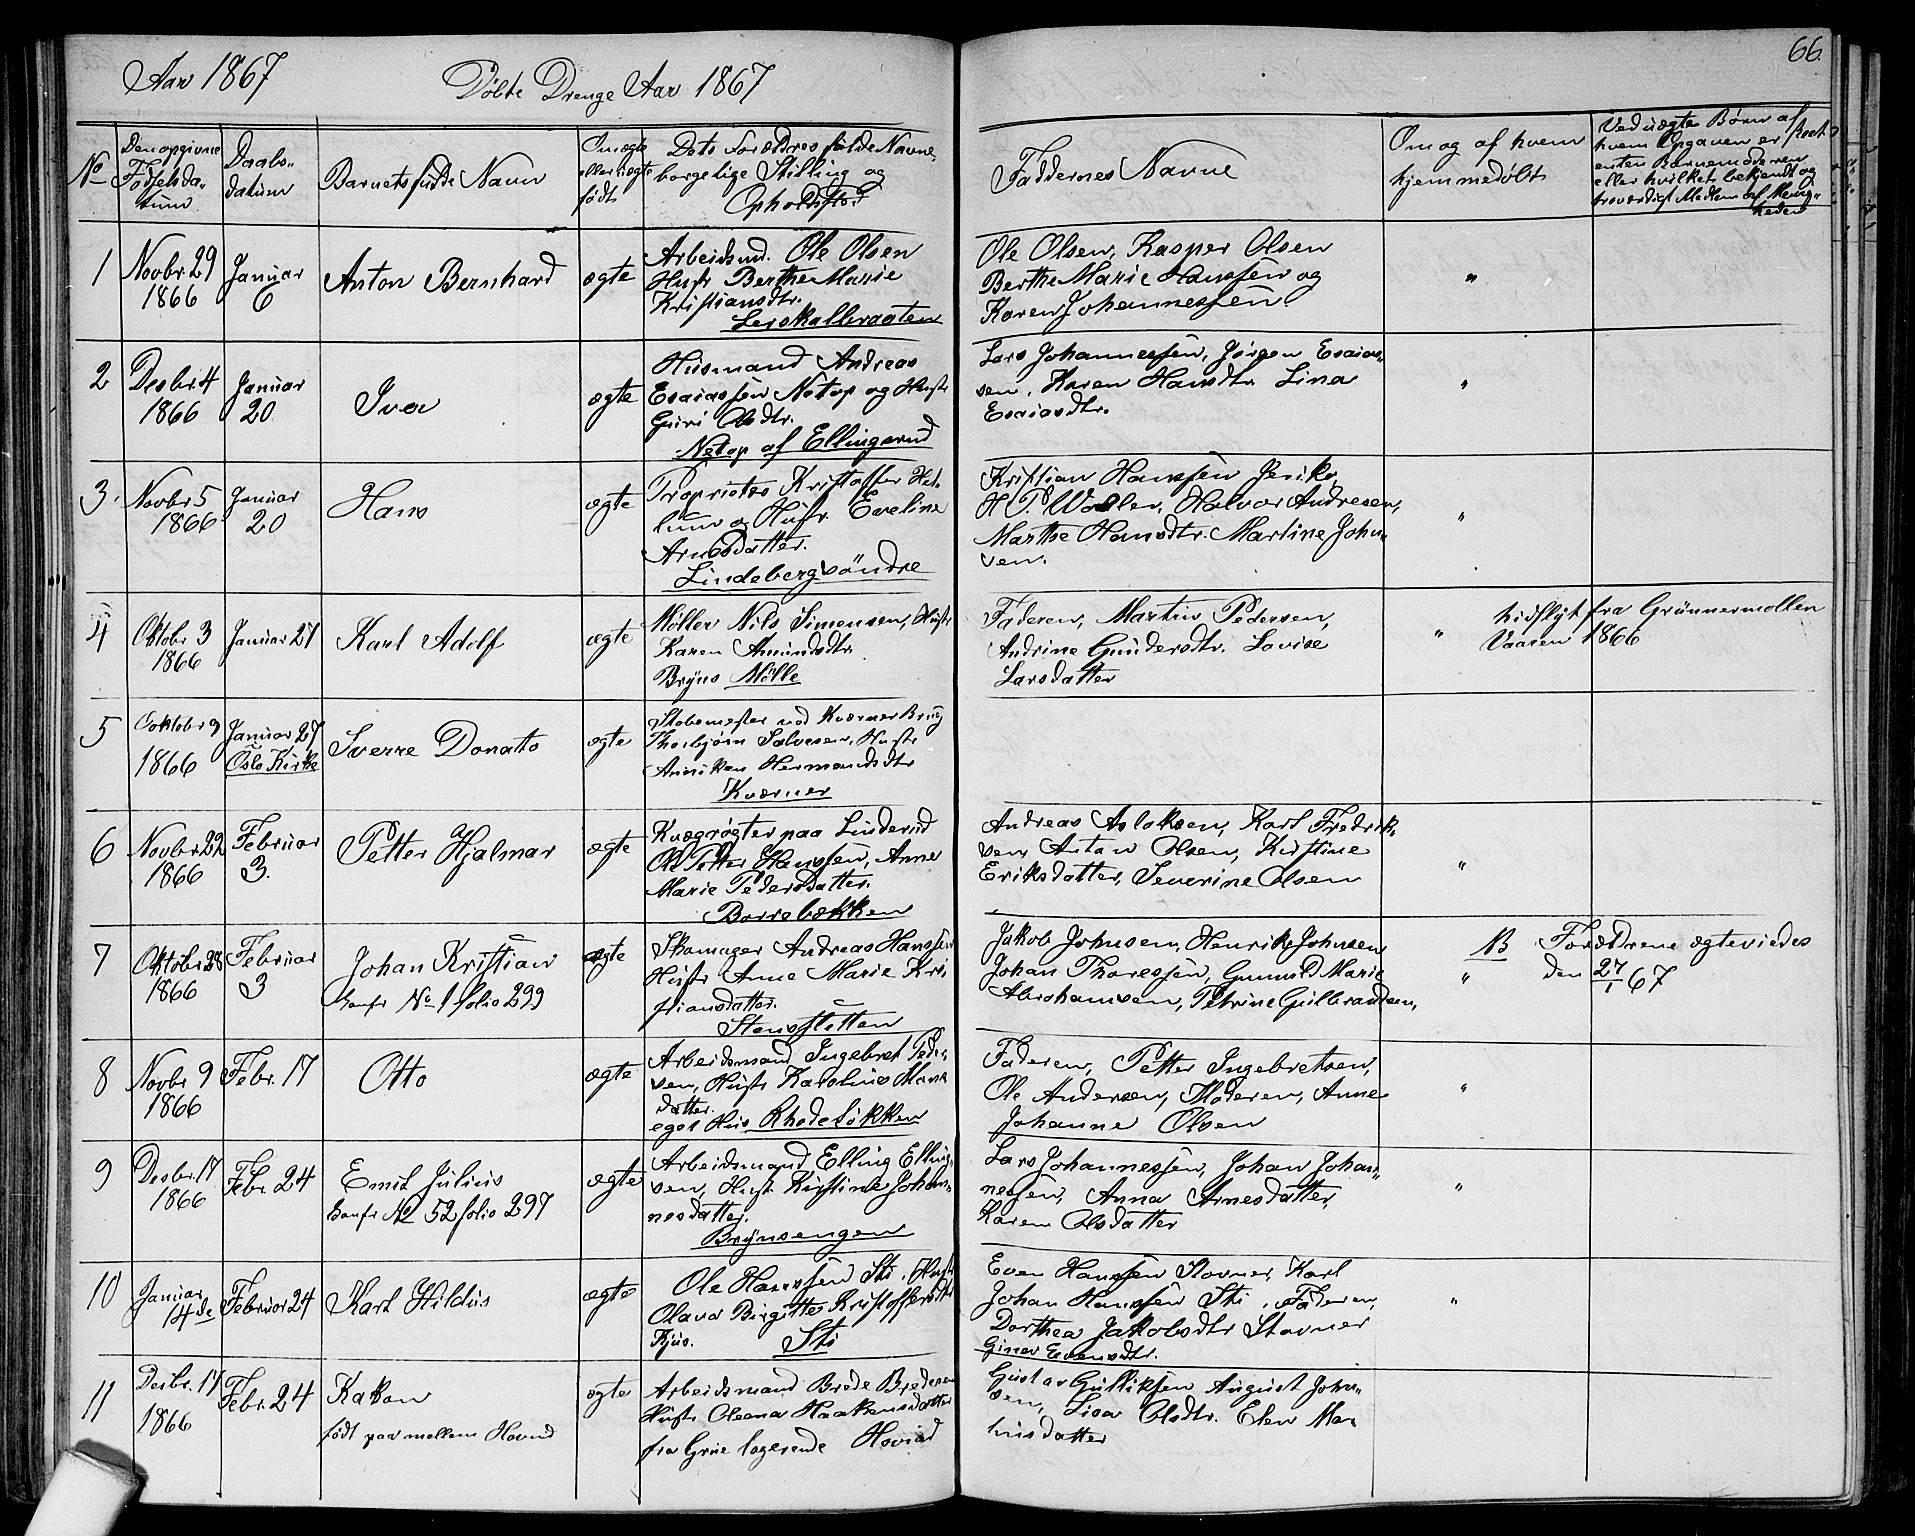 Aar 1867
Döbte Drenge Aar 1867
66.
No
Den opgivne
Fødselsda-
tum
Daabs-
datum
Barnets fulde Navn
Om ægte
eller uægte
født
Dets Forældres fulde Navne,
borgelige Stilling og
Opholdssted
Faddernes Navne
Om og af hvem
hjemmedøbt
Ved uægte Børn af
hvem Opgaven er skeet
enten Barnemoderen
eller hvilket bekjendt og
troværdigt Medlem af Menig-
heden
1
Novbr 29
1866
Januar
6
Anton Bernhard
ægte
Arbeidsmd. Ole Olsen
Hustr Berthe Marie
Kristiansdtr.
Lerskallbraaten
Ole Olsen, Kasper Olsen
Berthe Marie Hanssen og
Karen Johannessen
"
2
Desbr. 4
1866
Januar
20
Iver
ægte
Husmand Andreas
Esaiassen Nötop og Hustr
Guri Olsdtr.
Netop af Ellingsrud
Lars Johannessen, Jörgen Esaias-
sen, Karen Hansdtr. Lina
Esaiasdtr.
"
3.
Novbr 5
1866
Januar
20
Hans
ægte
Proprietær Kristoffer Hel-
lum og Hustr. Eveline
Arnesdatter.
Lindeberg söndre
Kristian Hanssen Jeriko,
H. P. Woller, Halvor Andresen,
Marthe Hansdtr. Martine John-
sen.
"
4
Oktobr 3
1866
Januar 27
Karl Adolf
ægte
Möller Nils Simensen, Hustr
Karen Amundsdtr.
Bryns Mølle
Faderen, Martin Pedersen,
Andrine Gundersdtr. Lovise
Larsdatter
"
hidflyt fra Grünnermollen
Vaaren 1866
5
Ooktobr 9
1866
Januar 27
i Oslo Kirke
Sverre Donatto
ægte
Støbemester ved Kværner Brug
Thorbjörn Salvesen, Hustr
Anniken Hermandsdtr
Kværner
6
Novbr 22
1866
Februar
3.
Petter Hjalmar
ægte
Kvægrøgter paa Linderud
Ole Petter Hanssen, Anne
Marie Pedersdatter.
Borrebækken
Andreas Aslaksen, Karl Fredrik-
sen, Anton Olsen, Kirstine
Eriksdatter, Severine Olsen
"
7
Oktober 28
1866
Februar
3
Johan Kristian
Konfr No 1 folio 299
ægte
Skomager Andreas Hanssen
Hustr Anne Marie Kri-
stiansdatter.
Stensletten
Jakob Johnsen, Henrik Johnsen
Johan Thoressen, Gunnild Marie
Abrahamsen, Petrine Gulbrandsen,
"
NB Forældrene ægteviedes
den 27/1 67
8
Novbr 9
1866
Febr. 17
Otto
ægte
Arbeidsmand Ingebret Peder-
sen, Hustr Karoline Mons
datter.
eget Hus Rhodeløkken
Faderen, Petter Ingebretsen,
Ole Andersen, Moderen, Anne
Johanne Olsen
"
9
Desbr. 17
1866
Febr. 24
Emil Julius
Konfr No 52 folio 297
ægte
Arbeidsmand Elling Elling-
sen, Hustr. Kirstine Johan-
nesdatter.
Brynsengen
Lars Johannessen, Johan Johan-
nessen, Anna Arnesdatter,
Karen Olsdatter
"
10
Januar
14de
Februar 24
Karl Hildus
ægte
Ole Hanssen Sti, Hustr
Olava Birgitte Kristoffersdtr
Kjus.
Sti
Even Hanssen Stovner, Karl
Johan Hanssen Sti, Faderen,
Dorthea Jakobsdtr Stovner
Giner Evensdtr.
"
11
Desbr. 17
1866
Febr. 24
Hakon
født paa mellem Hovind
ægte
Arbeidsmand Brede Bredesen
Hustr Oleana Haakensdatter
fra Grue logerende Hovind
Gustav Gulliksen August John-
sen, Lisa Olsdtr. Elen Mar-
thisdatter